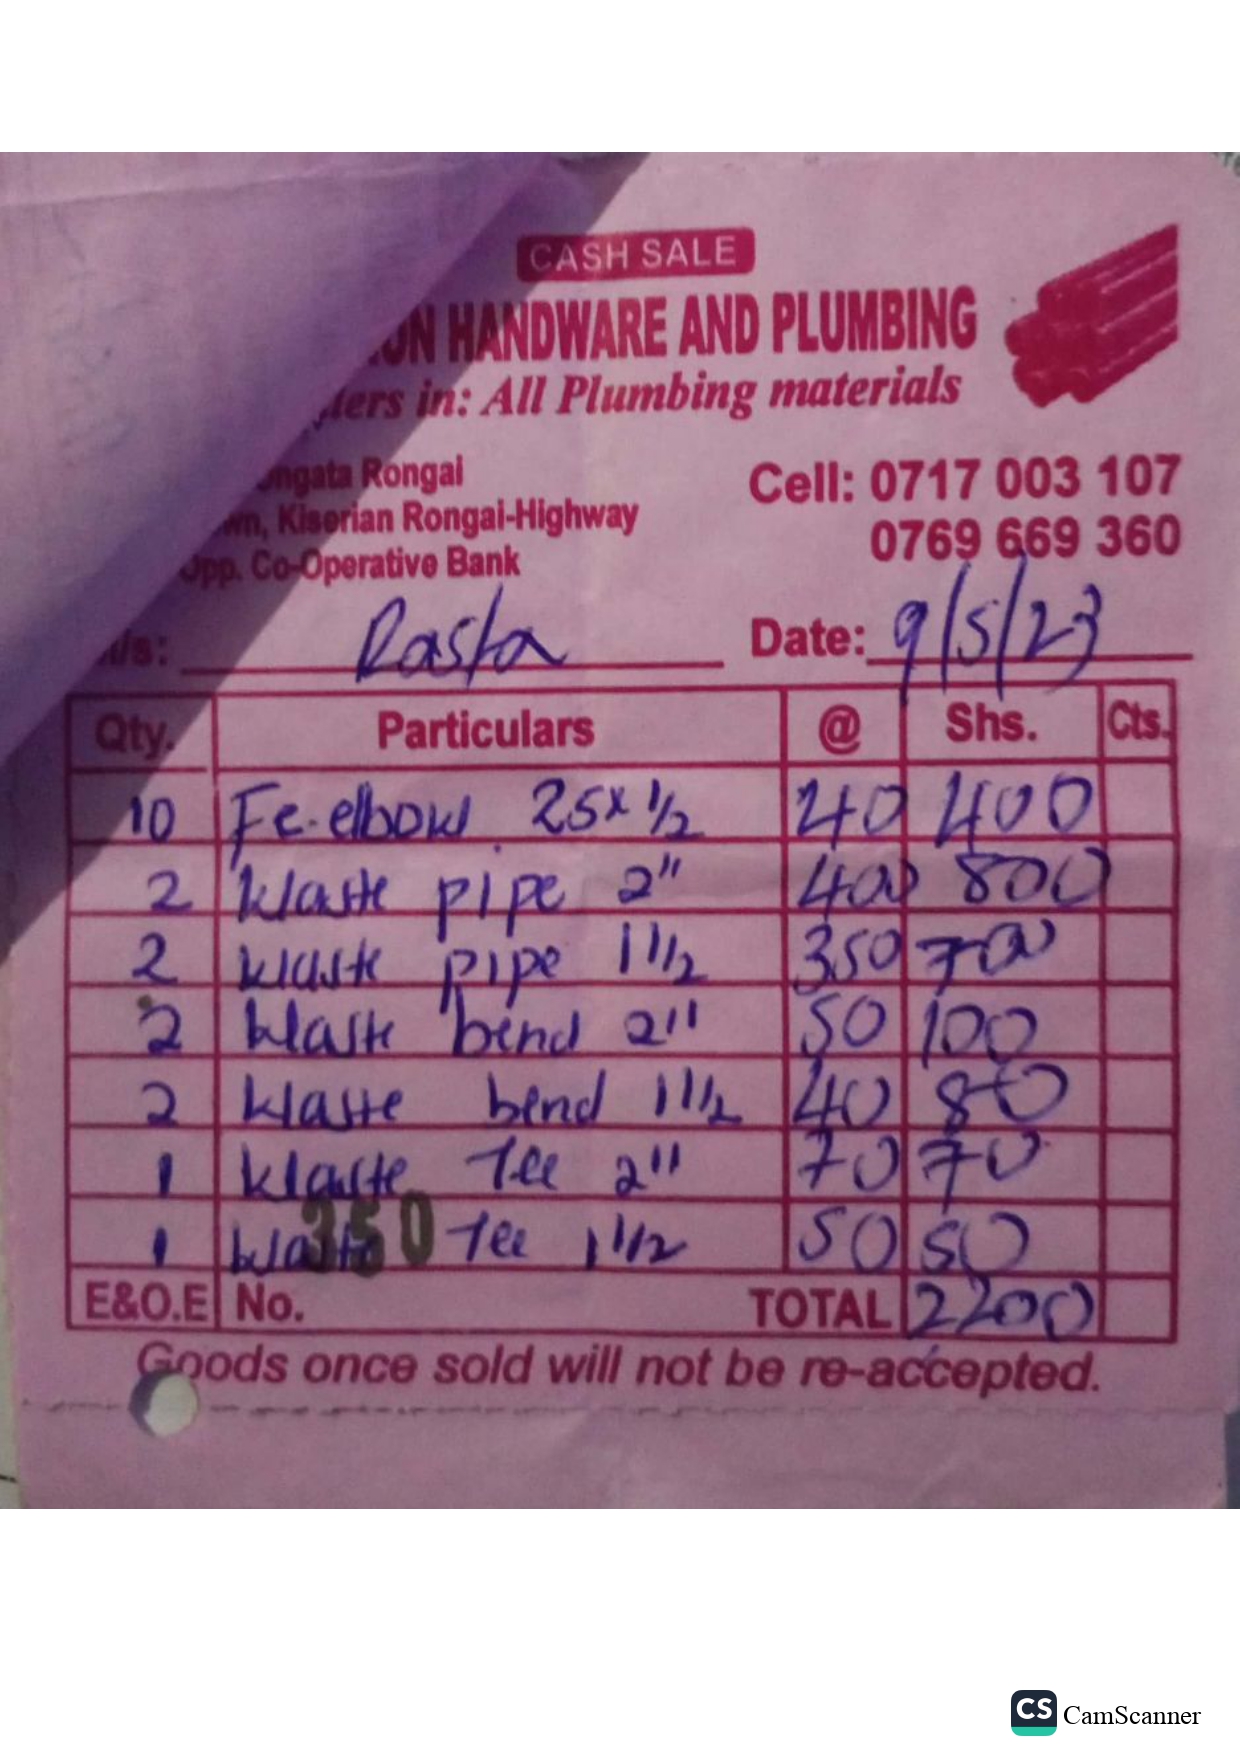 CASH SALE
ON HANDWARE AND PLUMBING
in: All Plumbing materials
Rongai
Cell: 0717 003 107
Kiserian Rongai-Highway
0769 669 360
Opp. Co-Operative Bank
M/s: Rasta Date: 9/5/23
Qty. Particulars @ Shs. Cts.
10 Fe-elbow 25x1/2 40 400
2 Waste pipe 2" 400 800
2 Waste pipe 1 1/2 350 700
2 Waste bend 2" 50 100
2 Waste bend 1 1/2 40 80
1 Waste Tee 2" 70 70
1 Waste Tee 1 1/2 50 50
350
E&O.E No. TOTAL 2200
Goods once sold will not be re-accepted.
CS CamScanner